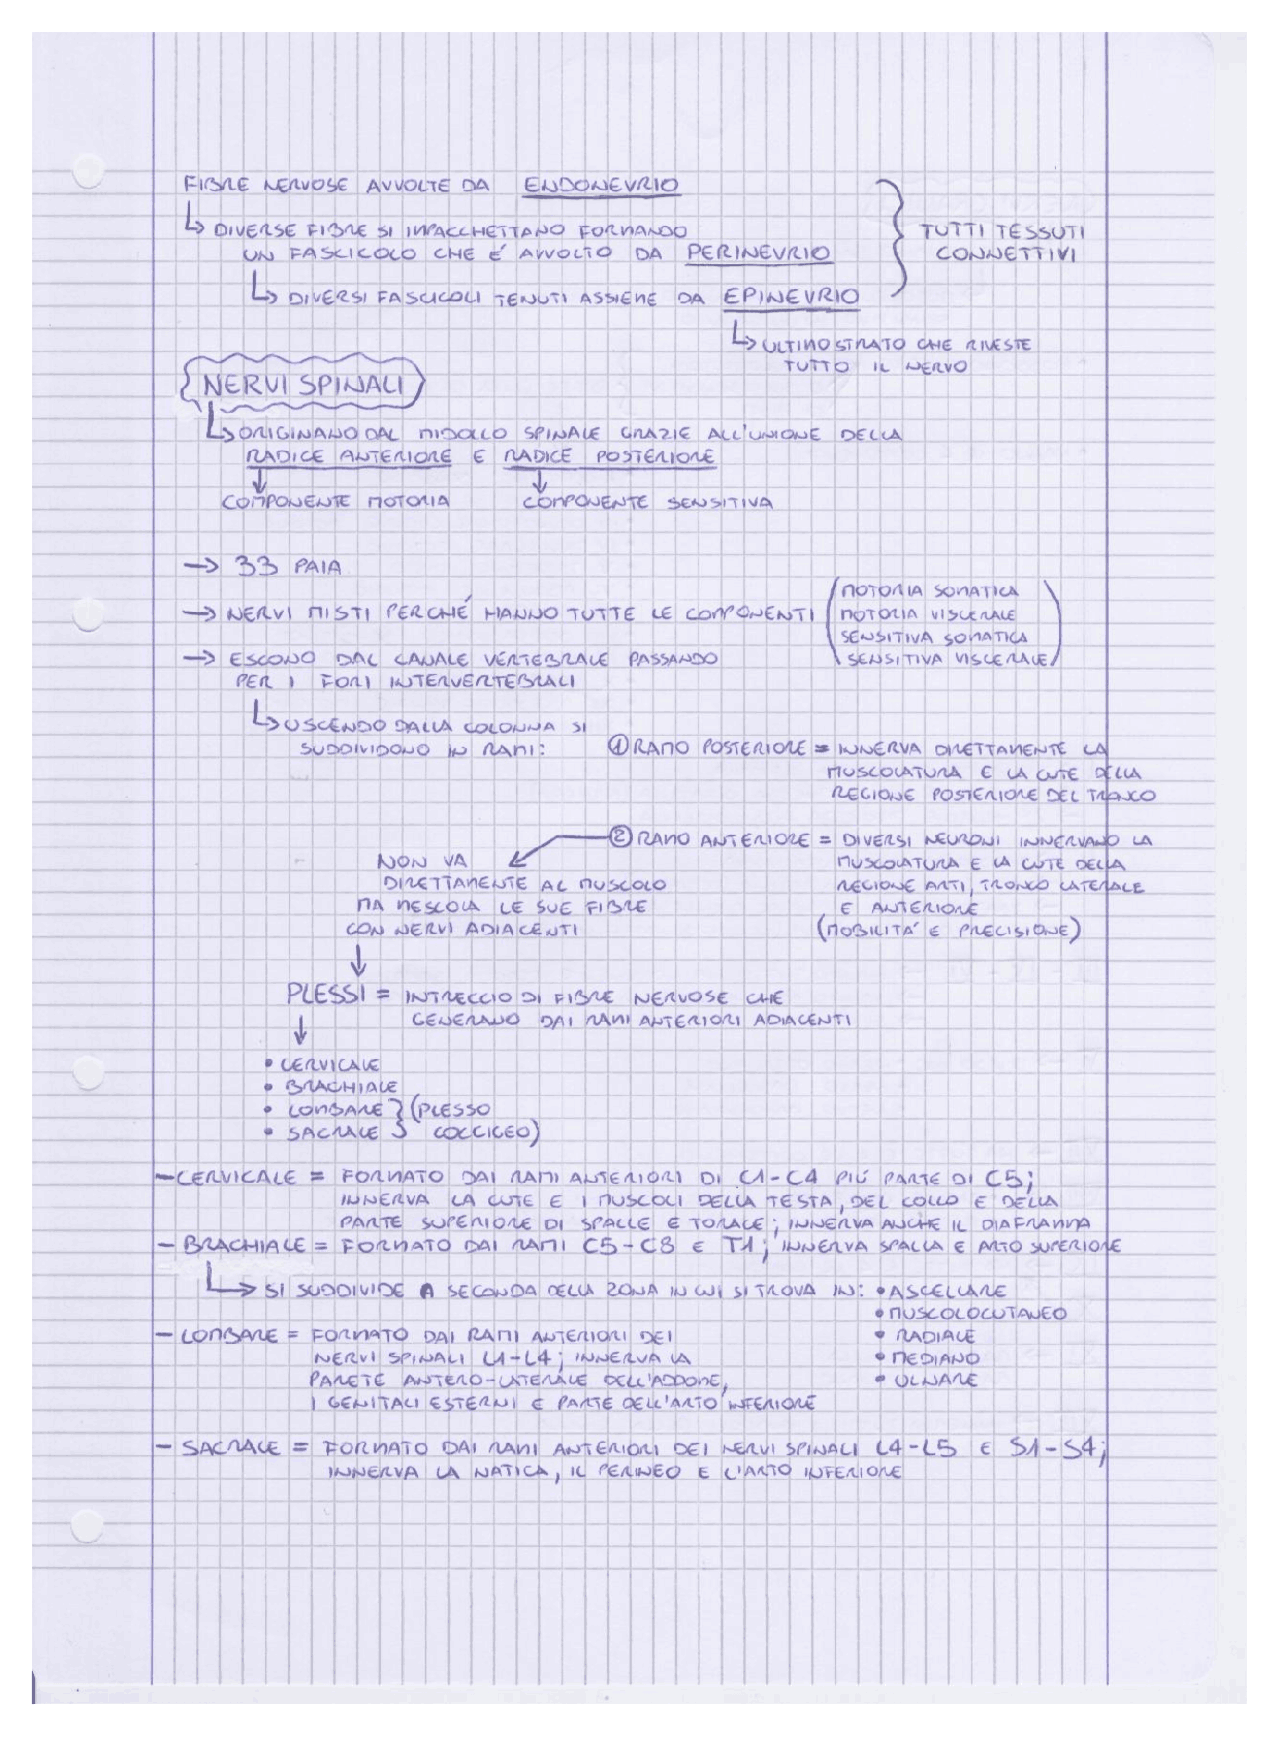 FIBRE NERVOSE AVVOLTE DA ENDONEVRIO
↳ DIVERSE FIBRE SI IMPACCHETTANO FORMANDO
UN FASCICOLO CHE É AVVOLTO DA PERINEVRIO
↳ DIVERSI FASCICOLI TENUTI ASSIEME DA EPINEVRIO
TUTTI TESSUTI
CONNETTIVI
↳ ULTIMO STRATO CHE RIVESTE
TUTTO IL NERVO
NERVI SPINALI
↳ ORIGINANO DAL MIDOLLO SPINALE GRAZIE ALL'UNIONE DELLA
RADICE ANTERIORE E RADICE POSTERIORE
↓ ↓
COMPONENTE MOTORIA COMPONENTE SENSITIVA
→ 33 PAIA
→ NERVI MISTI PERCHÉ HANNO TUTTE LE COMPONENTI
(MOTORIA SOMATICA
MOTORIA VISCERALE
SENSITIVA SOMATICA
SENSITIVA VISCERALE)
→ ESCONO DAL CANALE VERTEBRALE PASSANDO
PER I FORI INTERVERTEBRALI
↳ USCENDO DALLA COLONNA SI
SUDDIVIDONO IN RAMI:
① RAMO POSTERIORE = INNERVA DIRETTAMENTE LA
MUSCOLATURA E LA CUTE DELLA
REGIONE POSTERIORE DEL TRONCO
② RAMO ANTERIORE = DIVERSI NEURONI INNERVANO LA
MUSCOLATURA E LA CUTE DELLA
REGIONE ARTI, TRONCO LATERALE
E ANTERIORE
(MOBILITA' E PRECISIONE)
NON VA
DIRETTAMENTE AL MUSCOLO
MA MESCOLA LE SUE FIBRE
CON NERVI ADIACENTI
↓
PLESSI = INTRECCIO DI FIBRE NERVOSE CHE
GENERANO DAI RAMI ANTERIORI ADIACENTI
↓
• CERVICALE
• BRACHIALE
• LOMBARE } (PLESSO
• SACRALE } COCCIGEO)
- CERVICALE = FORMATO DAI RAMI ANTERIORI DI C1-C4 PIÚ PARTE DI C5;
INNERVA LA CUTE E I MUSCOLI DELLA TESTA, DEL COLLO E DELLA
PARTE SUPERIORE DI SPALLE E TORALE; INNERVA ANCHE IL DIAFRAMMA
- BRACHIALE = FORMATO DAI RAMI C5-C8 E T1; INNERVA SPALLA E ARTO SUPERIORE
↳ SI SUDDIVIDE A SECONDA DELLA ZONA IN CUI SI TROVA IN: • ASCELLARE
• MUSCOLOCUTANEO
• RADIALE
• MEDIANO
• ULNARE
- LOMBARE = FORMATO DAI RAMI ANTERIORI DEI
NERVI SPINALI L1-L4; INNERVA LA
PARETE ANTERO-LATERALE DELL'ADDOME,
I GENITALI ESTERNI E PARTE DELL'ARTO INFERIORE
- SACRALE = FORMATO DAI RAMI ANTERIORI DEI NERVI SPINALI L4-L5 E S1-S4;
INNERVA LA NATICA, IL PERINEO E L'ARTO INFERIORE